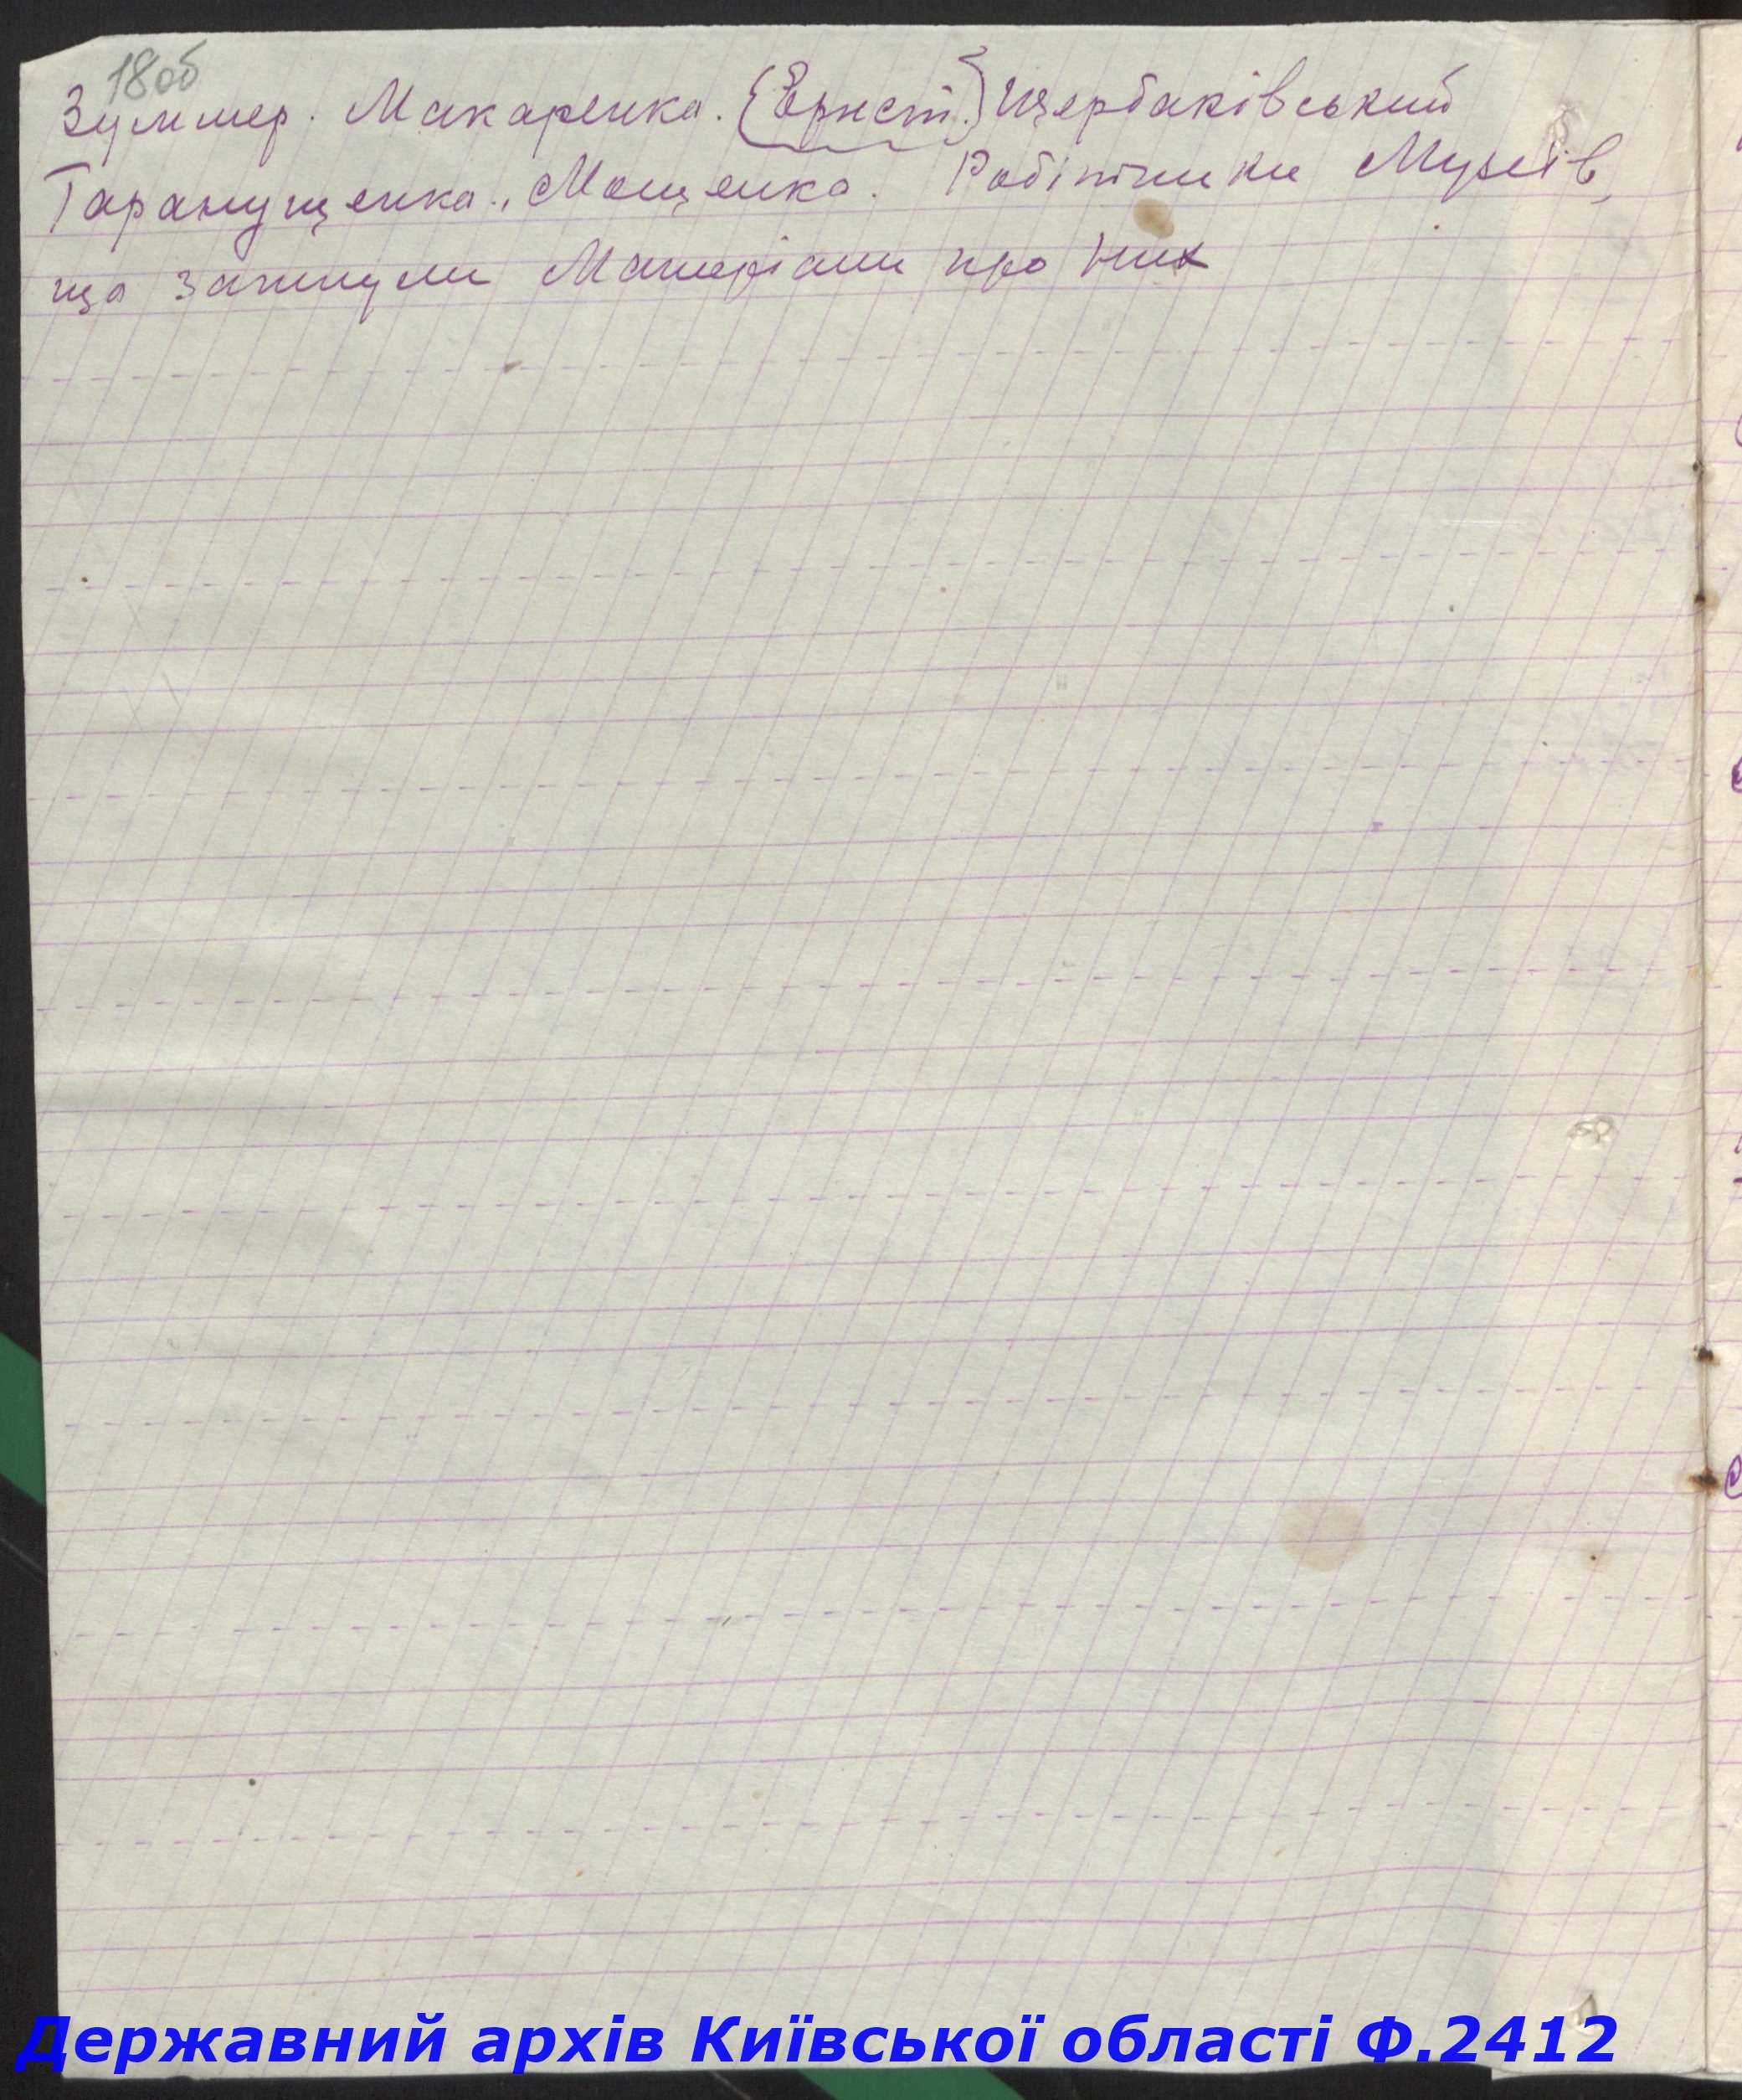 18об
Зуммер. Макаренка. (Ернст.) Щербаківський
Таранущенка., Мощенка. Робітники Музеїв,
що загинули Матеріали про них
Державний архів Київської області Ф.2412